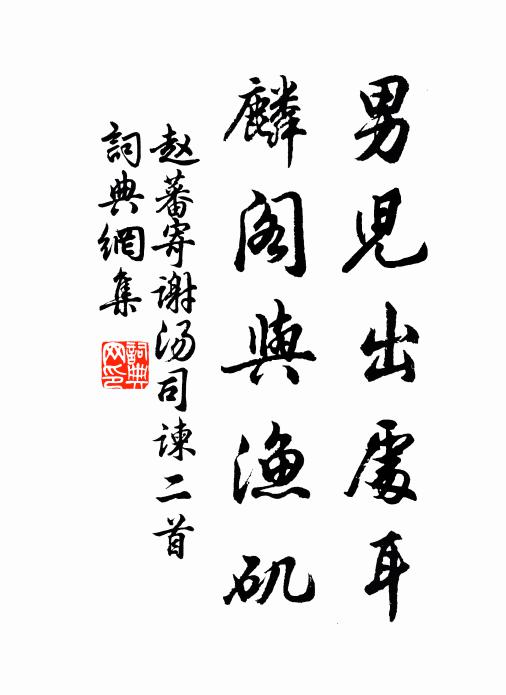 男兒出處耳
麟阁與漁矶
赵蕃寄谢汤司諫二首
詞典網集
詞典網印